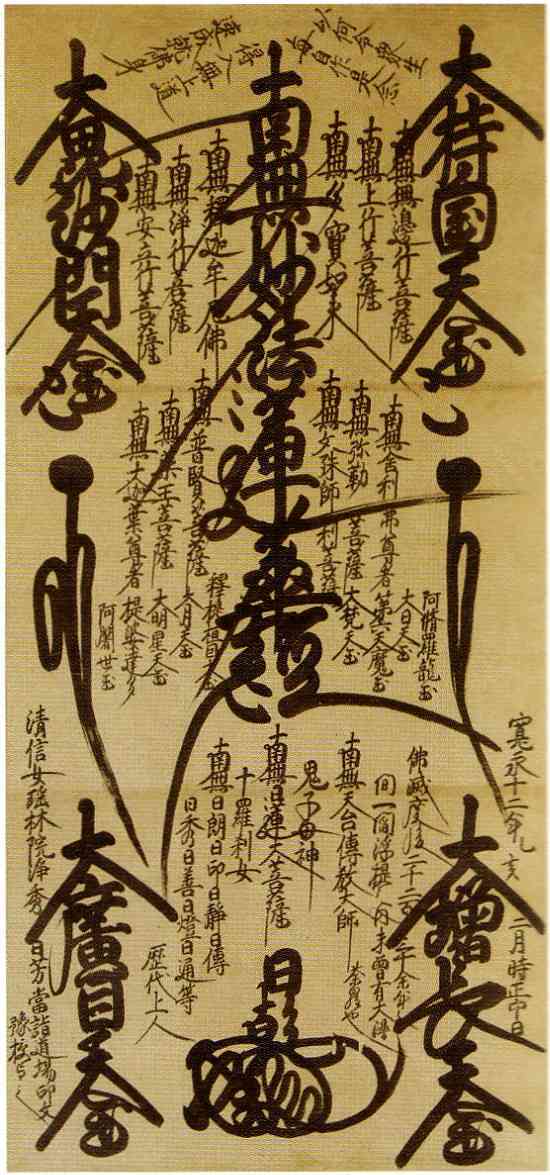 毎自作是念
以何令衆生
得入無上道
速成就佛身
大持国天玉
南無無邊行菩薩
南無上行菩薩
南無多寶如来
南無妙法蓮華經
南無釋迦牟尼佛
南無淨行菩薩
南無安立行菩薩
大毘沙門天玉
南無舍利弗尊者
南無弥勒菩薩
南無文珠師利菩薩
南無普賢菩薩
南無薬王菩薩
南無大迦葉尊者
阿脩羅龍玉
大日天玉
第六天魔玉
大梵天玉
釋提桓因天玉
大月天玉
大明星天玉
提婆達多
阿闍世玉
寛永十二年乙亥
二月時正中日
大增長天玉
佛滅度後二千二百三十余年
間一閻浮提之内未曽有大漫
荼羅也
南無天台傳教大師
鬼子母神
南無日蓮大菩薩
十羅刹女
南無日朗日印日静日傳
日秀日善日燈日通等
歴代上人
大廣目天玉
清信女瑶林院浄秀日芳當詣道場印文
豫授与之